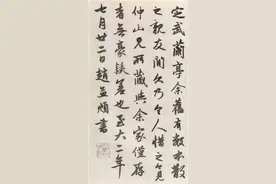 定武蘭亭余舊有數本散
之親友間久乃令人惜之今見
仲山兄所藏與余家僅存
者無豪髮差也至大二年
七月廿二日趙孟頫書